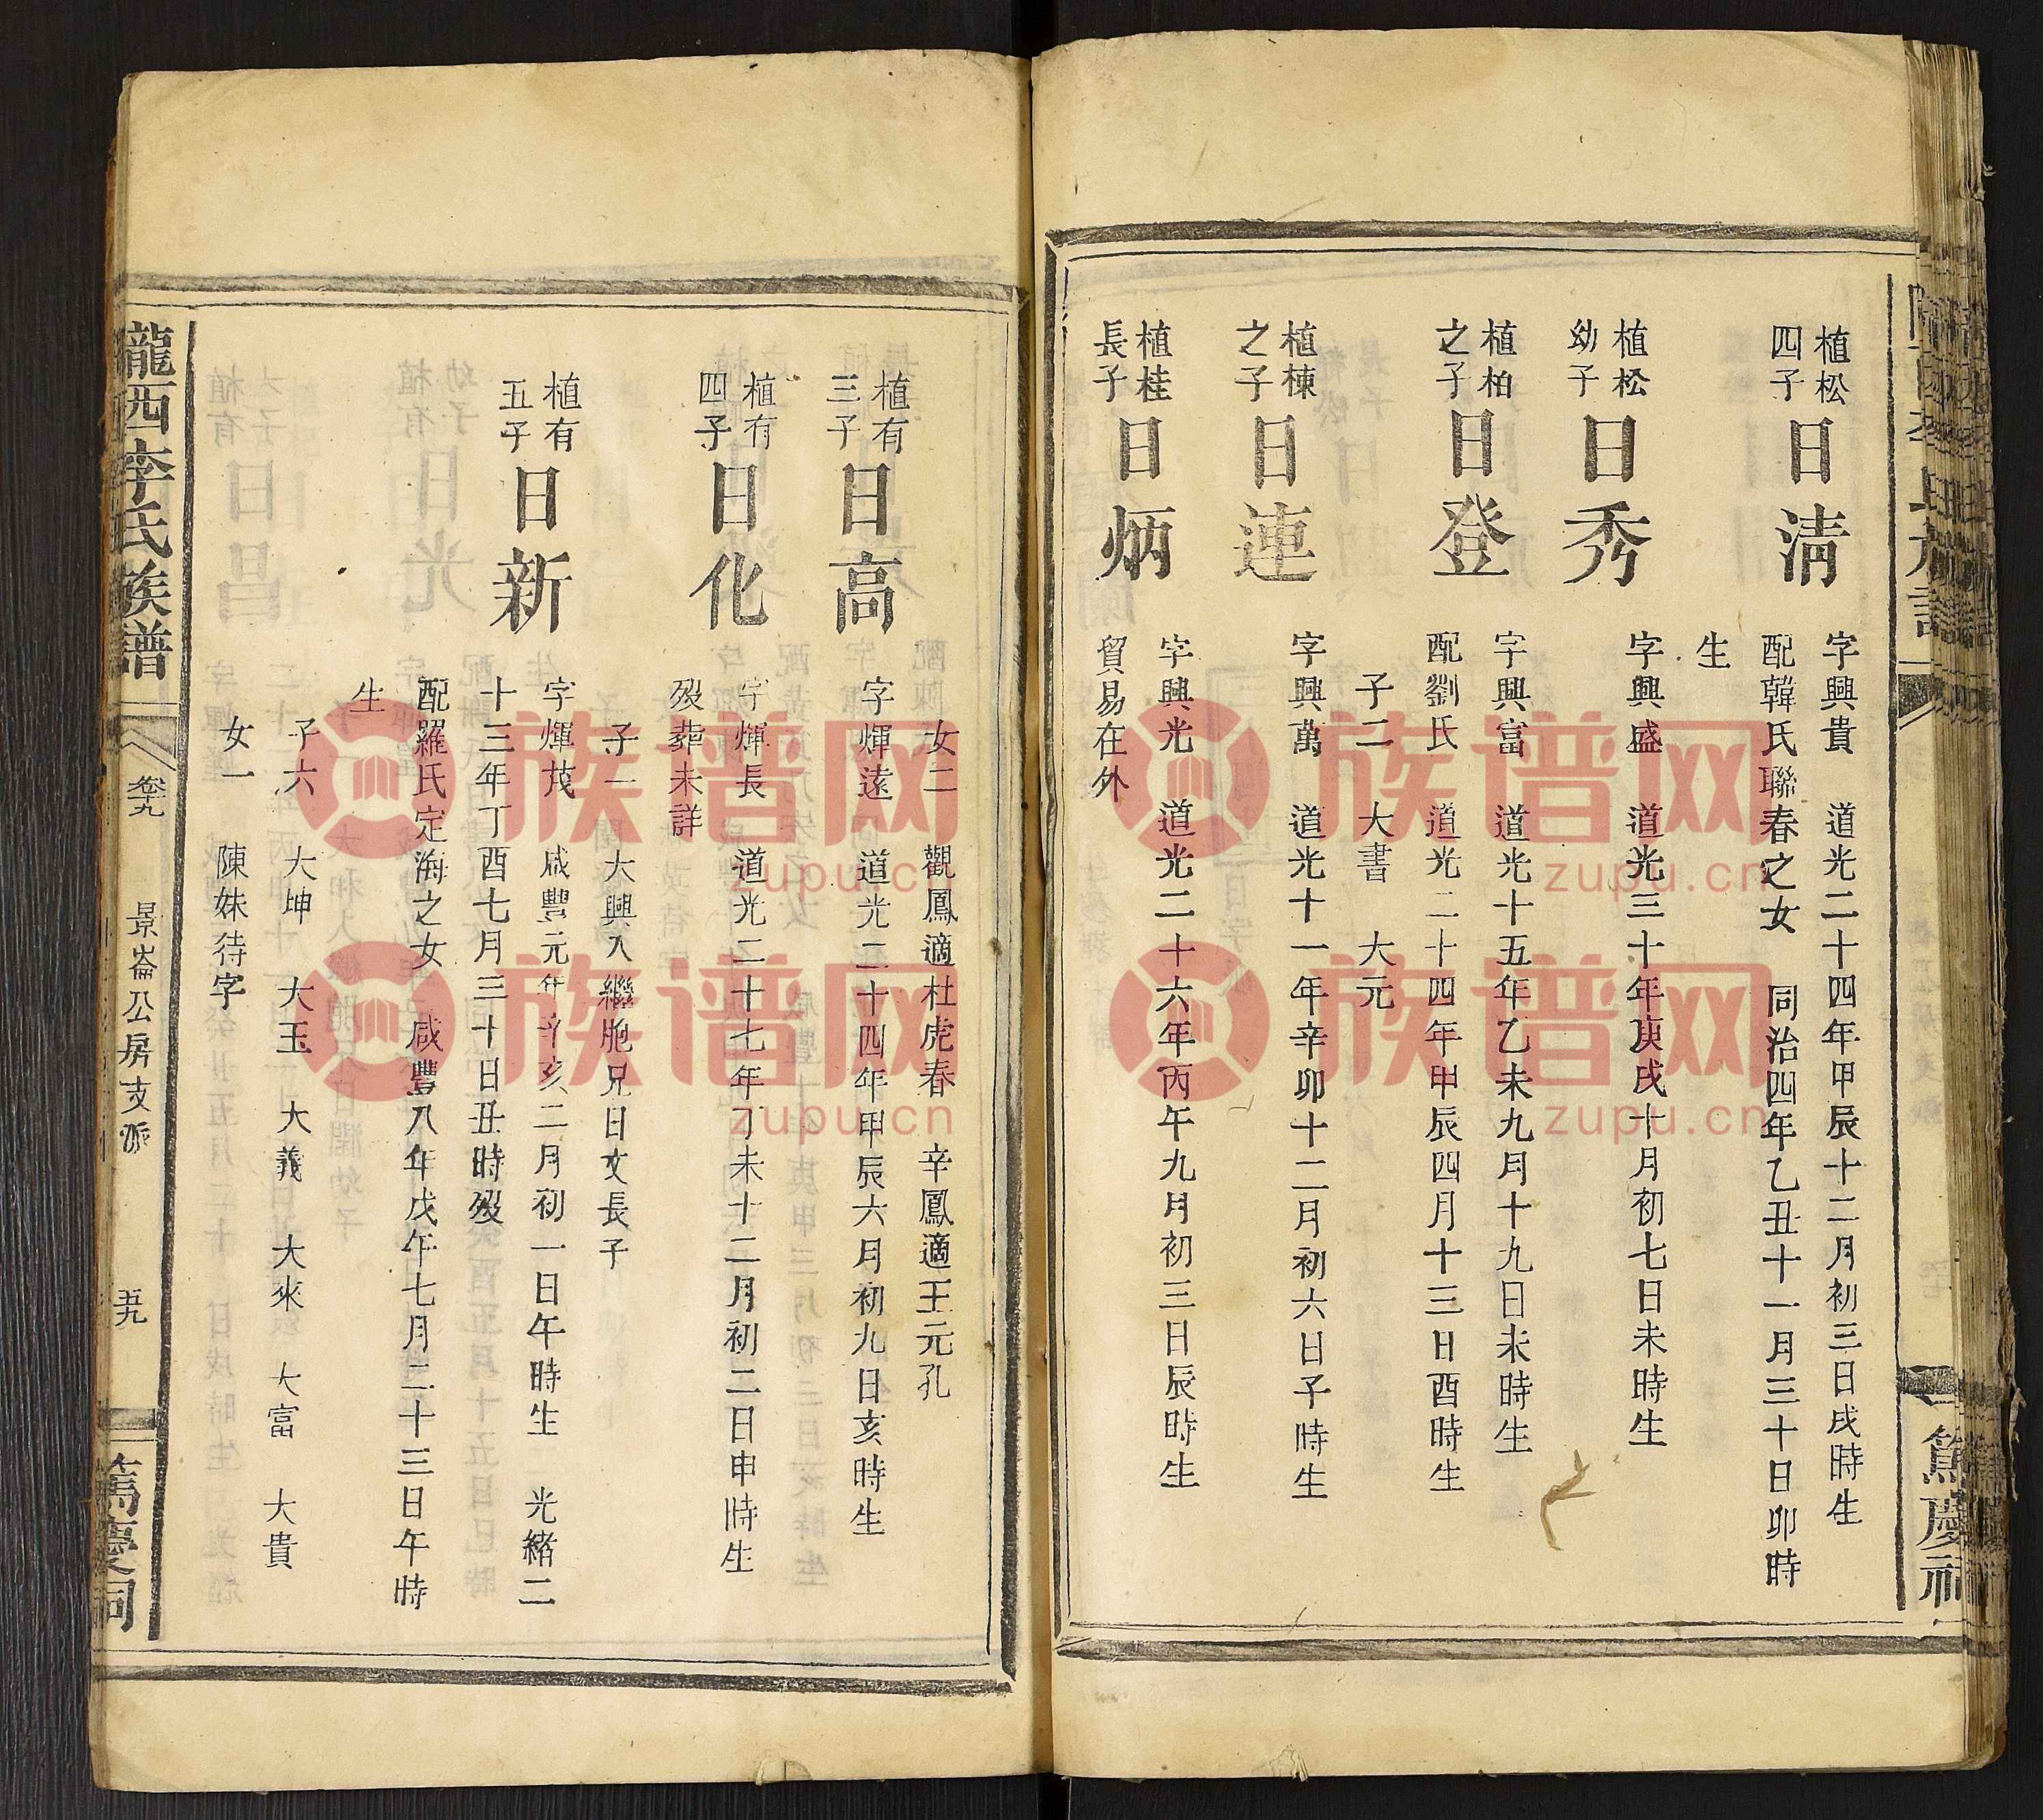 植松
四子
日清
字興貴　道光二十四年甲辰十二月初三日戌時生
配韓氏聯春之女　同治四年乙丑十一月三十日卯時
生
植松
幼子
日秀
字興盛　道光三十年庚戌十月初七日未時生
植柏
之子
日登
字興富　道光十五年乙未九月十九日未時生
配劉氏　道光二十四年甲辰四月十三日酉時生
子二　大書　大元
植棟
之子
日蓮
字興萬　道光十一年辛卯十二月初六日子時生
植桂
長子
日炳
字興光　道光二十六年丙午九月初三日辰時生
貿易在外
女二　觀鳳適杜虎春　辛鳳適王元孔
植有
三子
日高
字煇遠　道光二十四年甲辰六月初九日亥時生
子一　大興入繼胞兄日文長子
植有
四子
日化
字煇長　道光二十七年丁未十二月初二日申時生
歿葬未詳
植有
五子
日新
字煇茂　咸豐元年辛亥二月初一日午時生　光緒二
十三年丁酉七月三十日丑時歿
配羅氏定海之女　咸豐八年戊午七月二十三日午時
生
子六　大坤　大玉　大義　大來　大富　大貴
女一　陳妹待字
隴西李氏族譜
卷十九
景崙公房支派
五九
篤慶祠
族谱网
zupu.cn
族谱网
zupu.cn
族谱网
zupu.cn
族谱网
zupu.cn